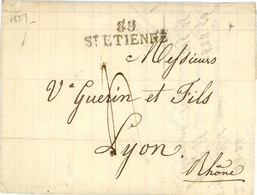 1827
88
ST ETIENNE
Messieurs
Ve Guerin et Fils
Lyon.
Rhône